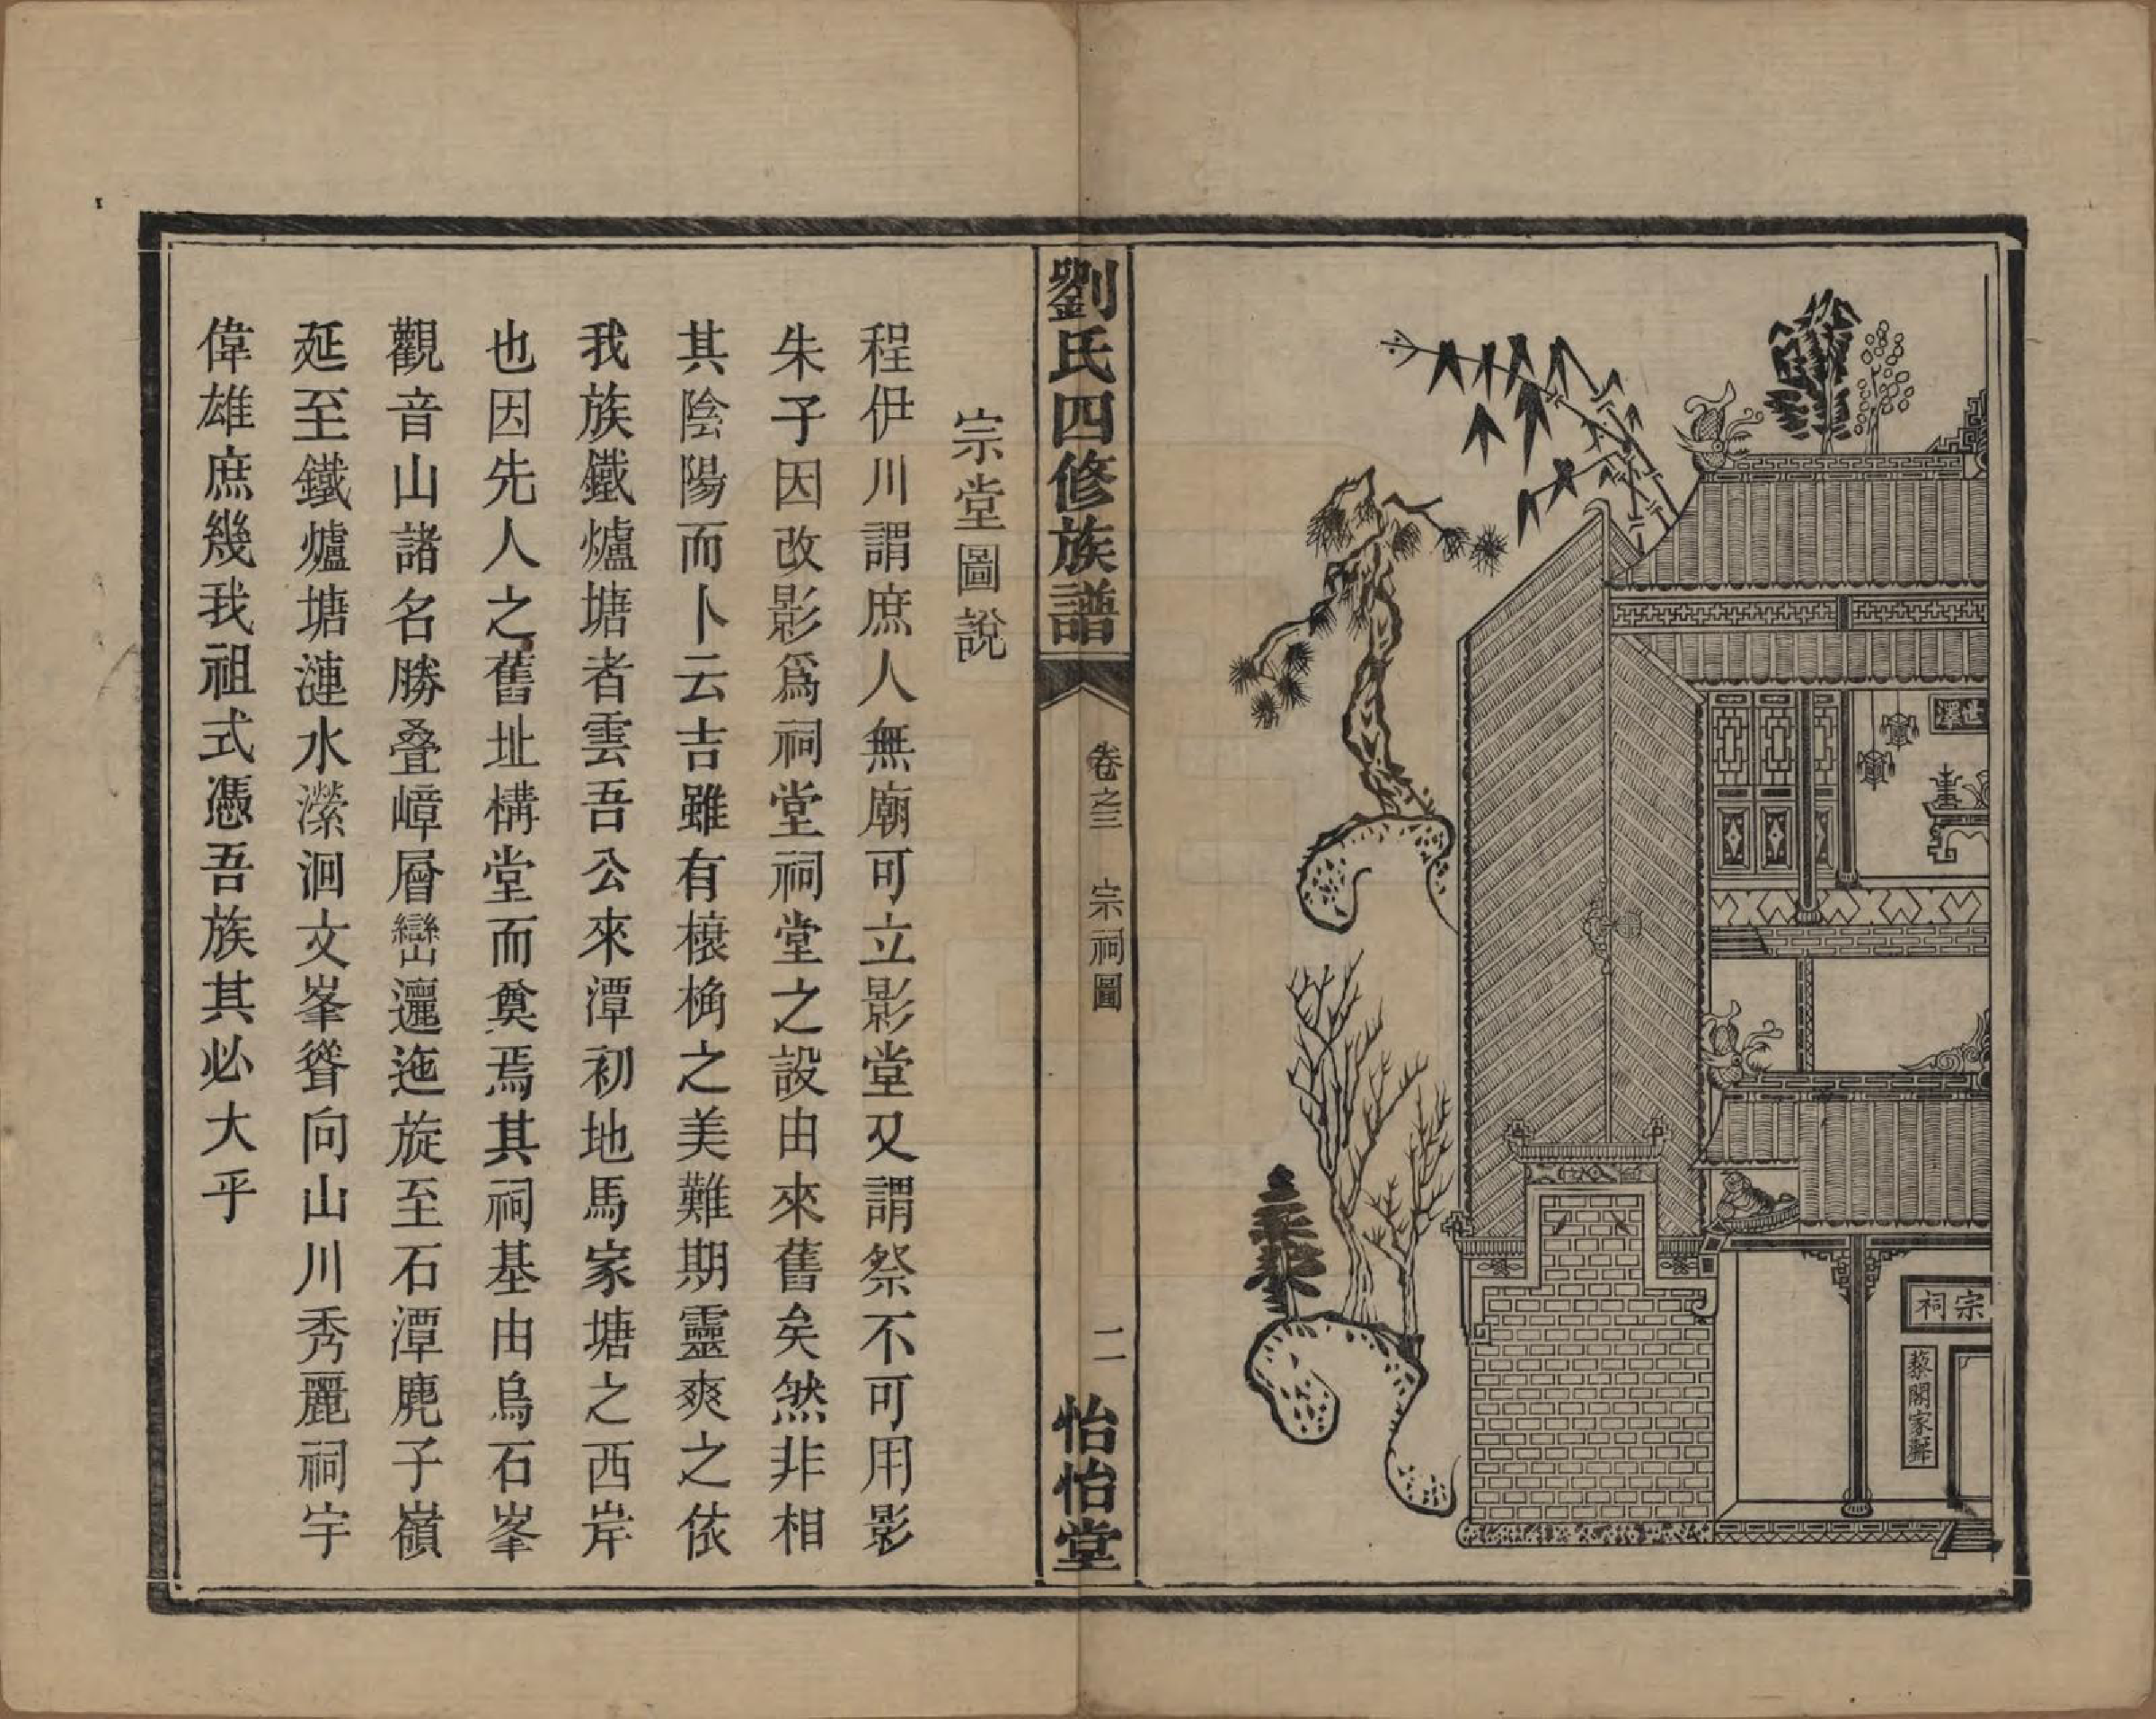 世澤
宗祠
藜閣家聲
劉氏四修族譜
卷之三
宗祠圖
二
怡怡堂
宗堂圖說
程伊川謂庶人無廟可立影堂又謂祭不可用影
朱子因改影爲祠堂祠堂之設由來舊矣然非相
其陰陽而卜云吉雖有榱桷之美難期靈爽之依
我族鐵爐塘者雲吾公來潭初地馬家塘之西岸
也因先人之舊址構堂而奠焉其祠基由烏石峯
觀音山諸名勝叠嶂層巒邐迤旋至石潭麂子嶺
延至鐵爐塘漣水瀠洄文峯聳向山川秀麗祠宇
偉雄庶幾我祖式憑吾族其必大乎